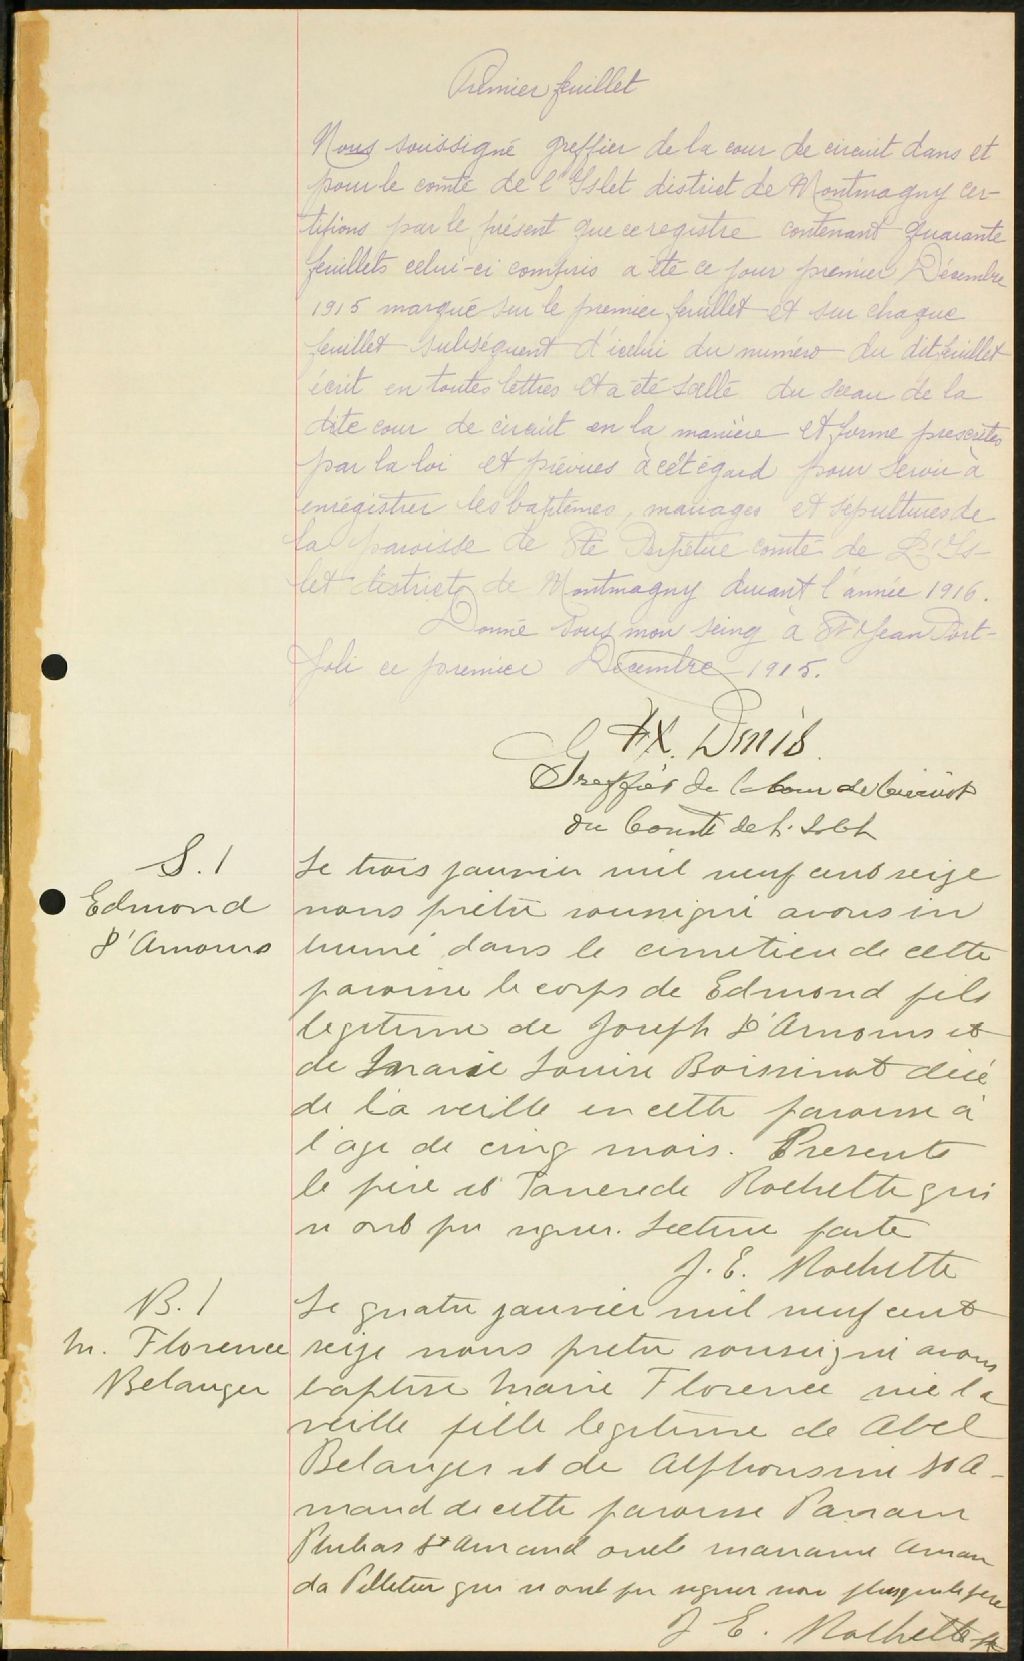 Premier feuillet
Nous soussigné greffier de la cour de circuit dans et
pour le comté de l'Islet district de Montmagny cer-
tifions par le présent que ce registre contenant quarante
feuillets celui-ci compris a été ce jour premier Décembre
1915 marqué sur le premier feuillet et sur chaque
feuillet subséquent d'icelui du numéro du dit feuillet
écrit en toutes lettres et a été scellé du sceau de la
dite cour de circuit en la manière et forme prescrites
par la loi et prévues à cet égard pour servir à
enrégistrer les baptêmes, mariages et sépultures de
la paroisse de Ste Perpétue comté de L'Is-
let district de Montmagny durant l'année 1916.
Donné sous mon seing à St Jean Port-
Joli ce premier Décembre 1915.
FX. Dmis
Greffier de la Cour de Circuit
du Comté de L'Islet
S. 1
Edmond
d'Amours
Le trois janvier mil neuf cent seize
nous prêtre soussigné avons in
humé dans le cimetiere de cette
paroisse le corps de Edmond fils
legitime de Joseph d'Amours et
de Marie Louise Boissinot décé
dé la veille en cette paroisse à
l'age de cinq mois. Presents
le père et Tancrede Rochette qui
n ont pu signer. Lecture faite
J. E. Rochette
B. 1
M. Florence
Belanger
Le quatre janvier mil neuf cent
seize nous pretre soussigné avons
baptisé Marie Florence née la
veille fille legitime de Abel
Belanger et de Alphonsine St A-
mand de cette paroisse Parrain
Phileas St Amand oncle marraine Aman
da Pelletier qui n ont pu signer non plus que le père
J E. Rochette